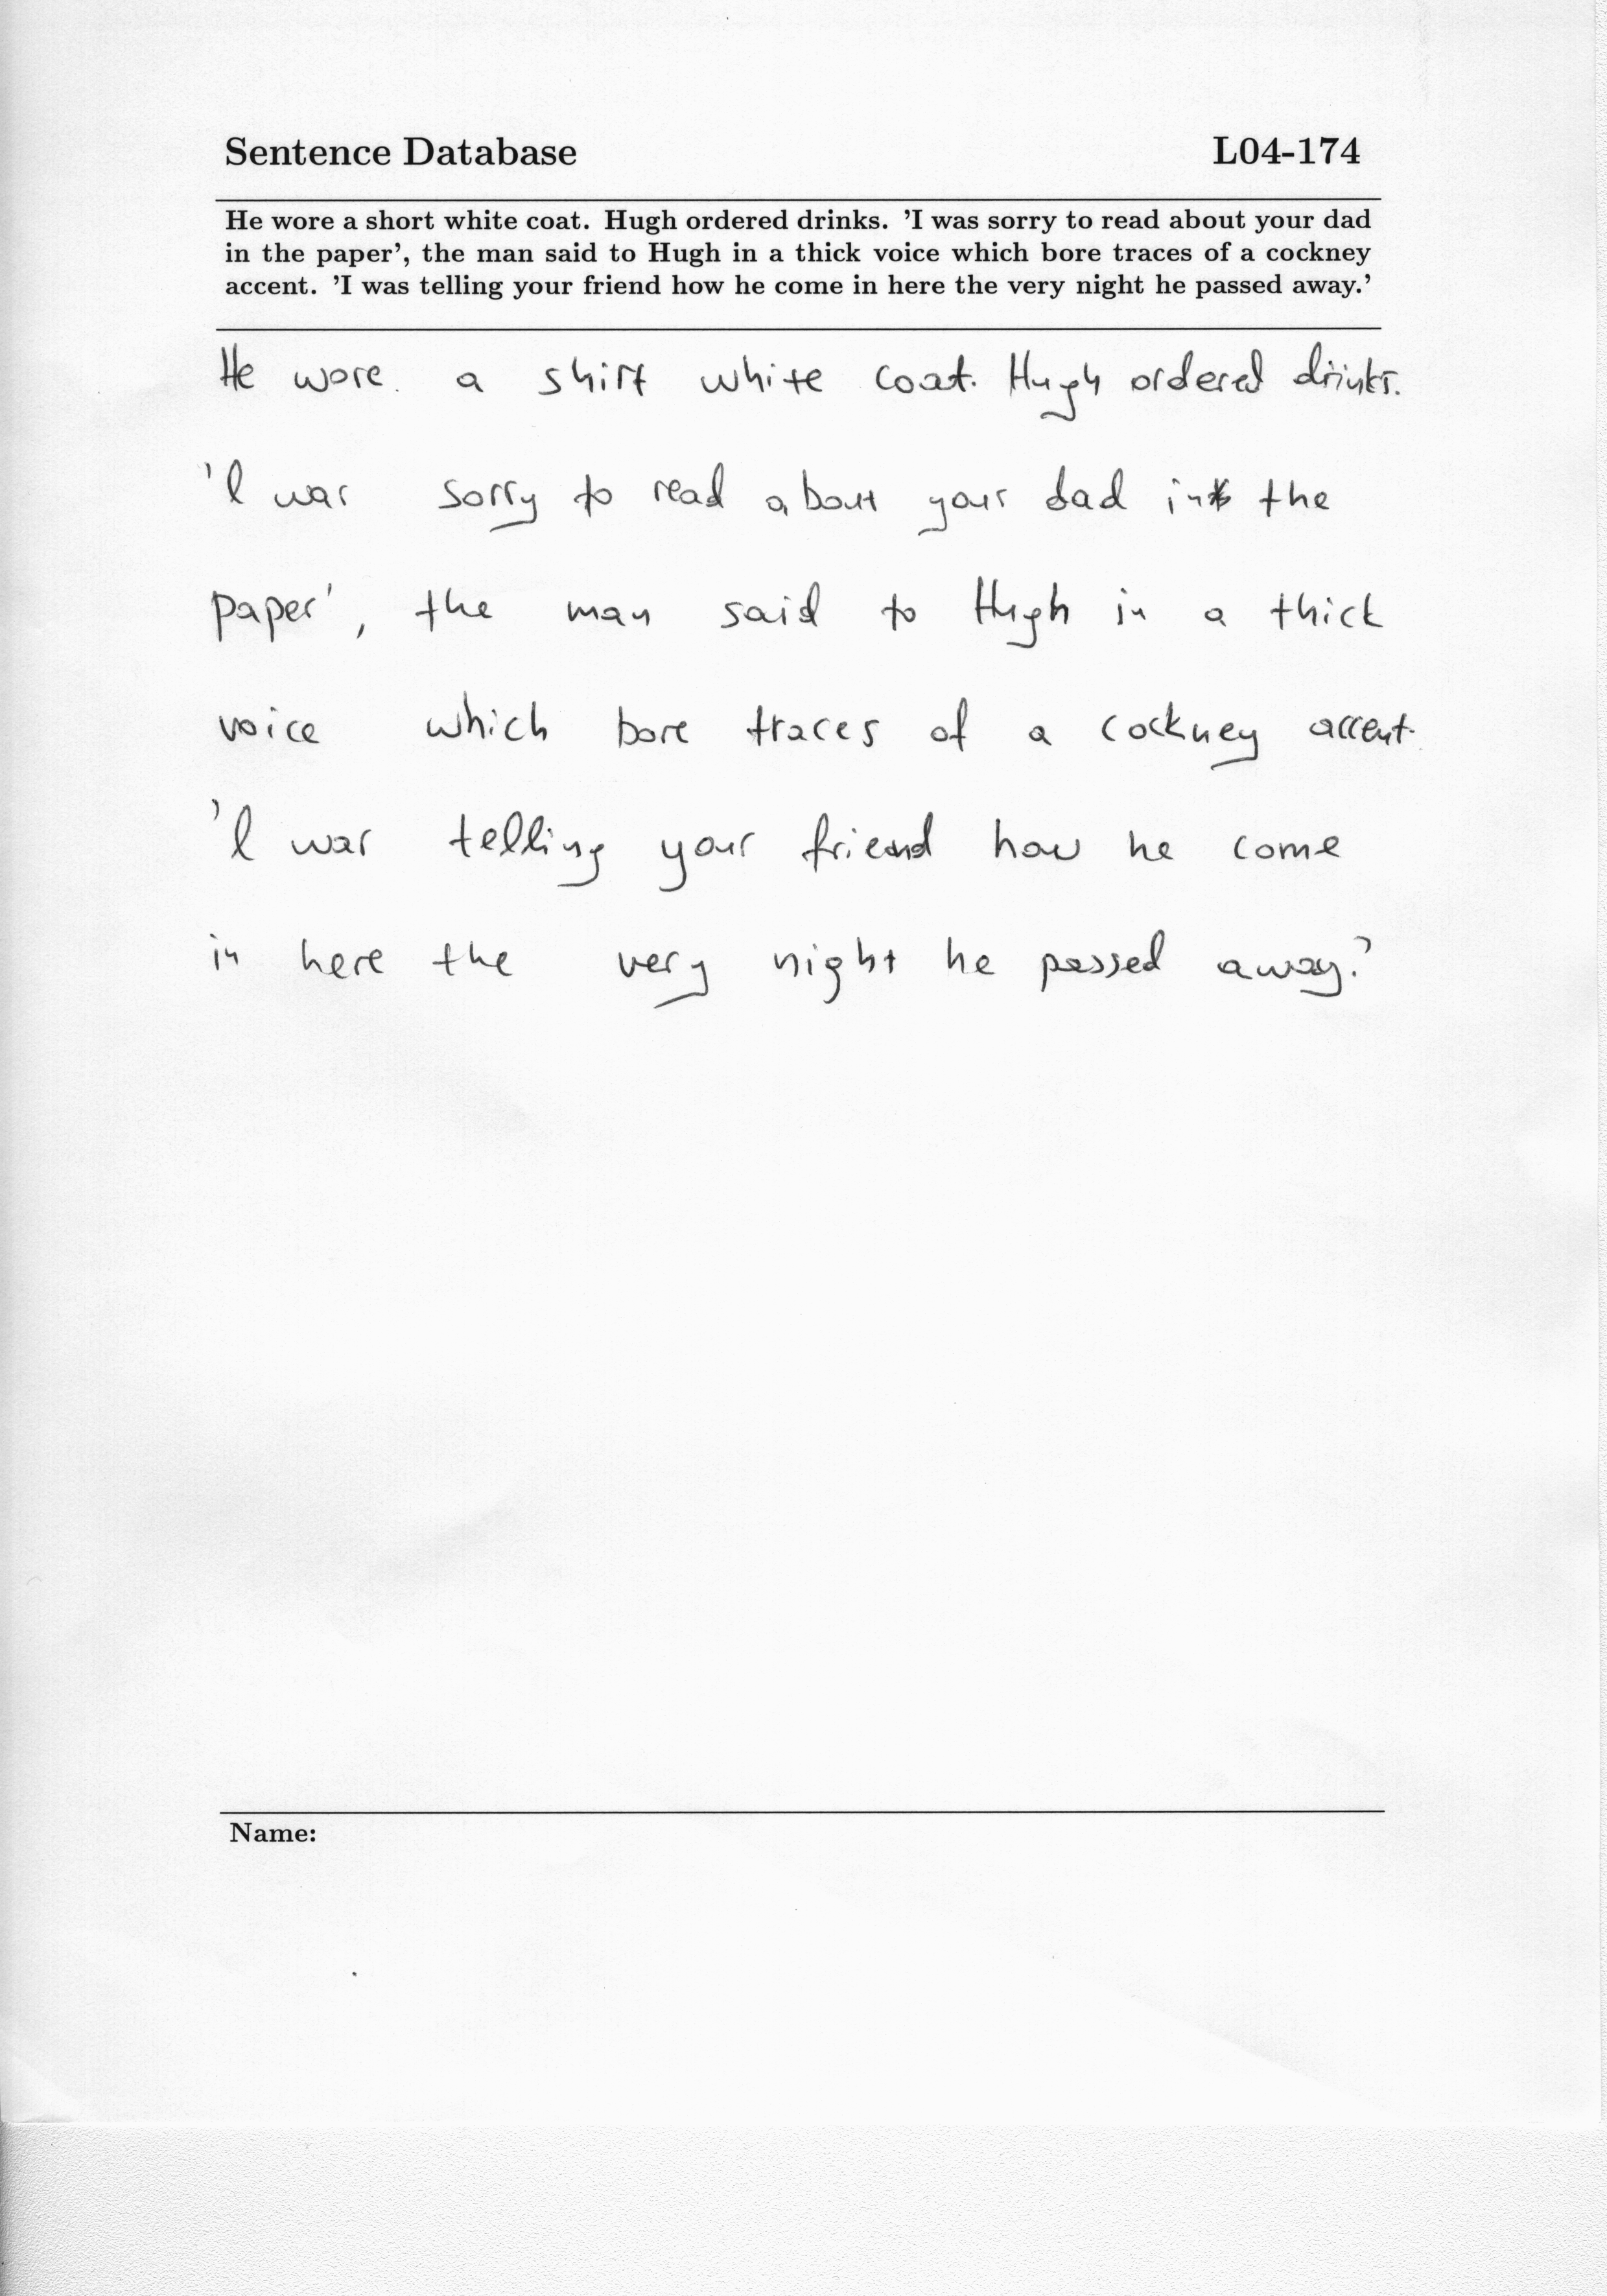 Sentence Database L04-174
He wore a short white coat. Hugh ordered drinks. ’I was sorry to read about your dad
in the paper’, the man said to Hugh in a thick voice which bore traces of a cockney
accent. ’I was telling your friend how he come in here the very night he passed away.’
He wore a shirt white coat. Hugh ordered drinks.
'I was sorry to read about your dad in the
paper', the man said to Hugh in a thick
voice which bore traces of a cockney accent.
'I was telling your friend how he come
in here the very night he passed away.'
Name: